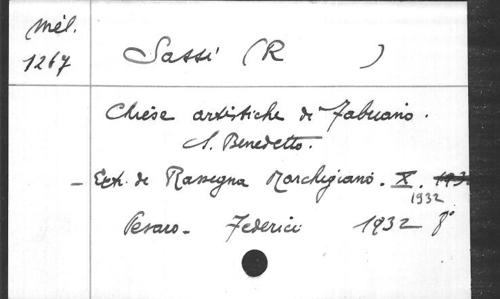 Mél.
1267
Sassi (R )
Chiese artistiche di Fabriano.
S. Benedetto.
- Ext. de Rassegna Marchigiano. X. 1932
1932
Pesaro - Federici 1932 8°